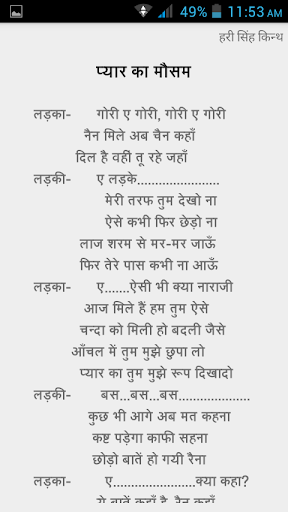 49% 11:53 AM
हरी सिंह किन्थ
प्यार का मौसम
लड़का- गोरी ए गोरी, गोरी ए गोरी
नैन मिले अब चैन कहाँ
दिल है वहीं तू रहे जहाँ
लड़की- ए लड़के.......................
मेरी तरफ तुम देखो ना
ऐसे कभी फिर छेड़ो ना
लाज शरम से मर-मर जाऊँ
फिर तेरे पास कभी ना आऊँ
लड़का- ए.......ऐसी भी क्या नाराजी
आज मिले हैं हम तुम ऐसे
चन्दा को मिली हो बदली जैसे
आँचल में तुम मुझे छुपा लो
प्यार का तुम मुझे रूप दिखादो
लड़की- बस...बस...बस....................
कुछ भी आगे अब मत कहना
कष्ट पड़ेगा काफी सहना
छोड़ो बातें हो गयी रैना
लड़का- ए.......................क्या कहा?
ये बातें कहाँ है, रैन कहाँ